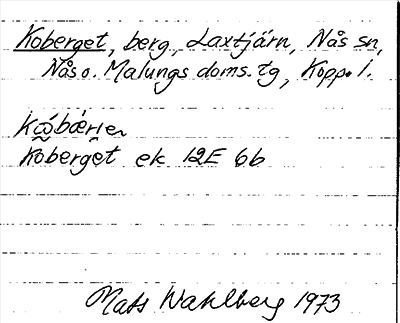 Koberget, berg, Laxtjärn, Nås sn,
Nås o. Malungs doms. tg, Kopp. l.
Koberget ek 12E 6b
Mats Wahlberg 1973